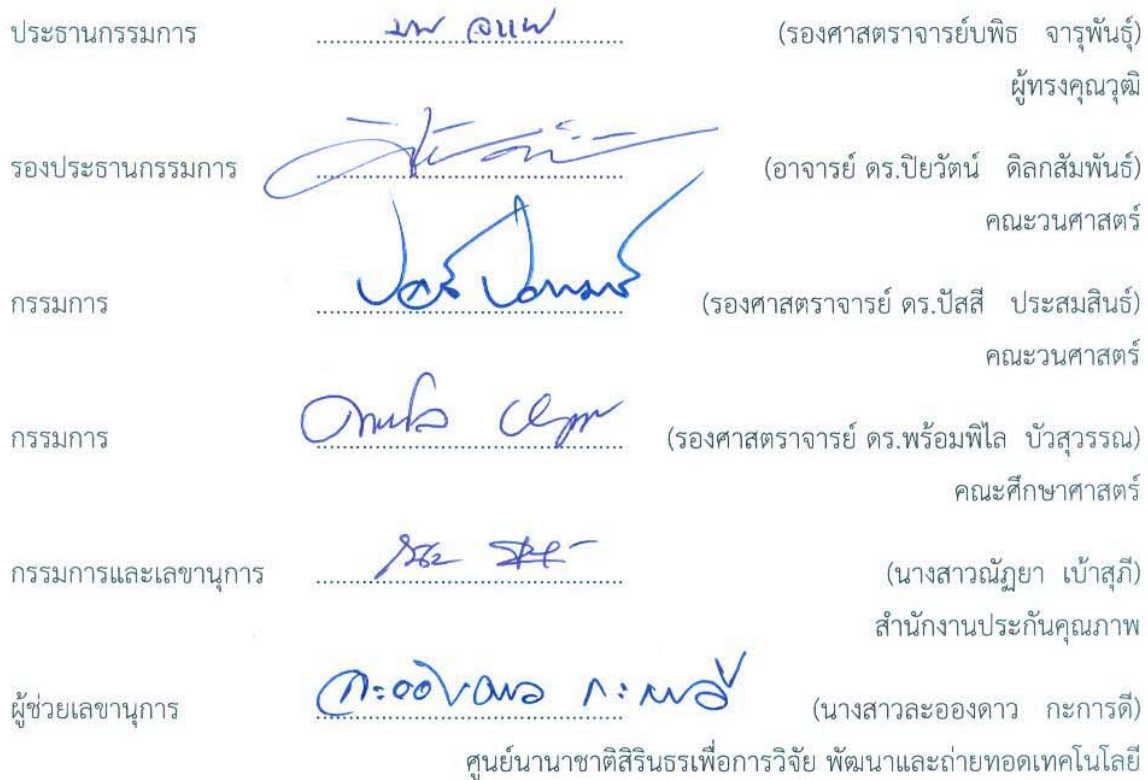 ประธานกรรมการ (รองศาสตราจารย์บพิธ จารุพันธุ์)
ผู้ทรงคุณวุฒิ
รองประธานกรรมการ (อาจารย์ ดร.ปิยวัตน์ ดิลกสัมพันธ์)
คณะวนศาสตร์
กรรมการ (รองศาสตราจารย์ ดร.ปัสสี ประสมสินธ์)
คณะวนศาสตร์
กรรมการ (รองศาสตราจารย์ ดร.พร้อมพิไล บัวสุวรรณ)
คณะศึกษาศาสตร์
กรรมการและเลขานุการ (นางสาวณัฏยา เบ้าสุภี)
สำนักงานประกันคุณภาพ
ผู้ช่วยเลขานุการ (นางสาวละอองดาว กะการดี)
ศูนย์นานาชาติสิรินธรเพื่อการวิจัย พัฒนาและถ่ายทอดเทคโนโลยี